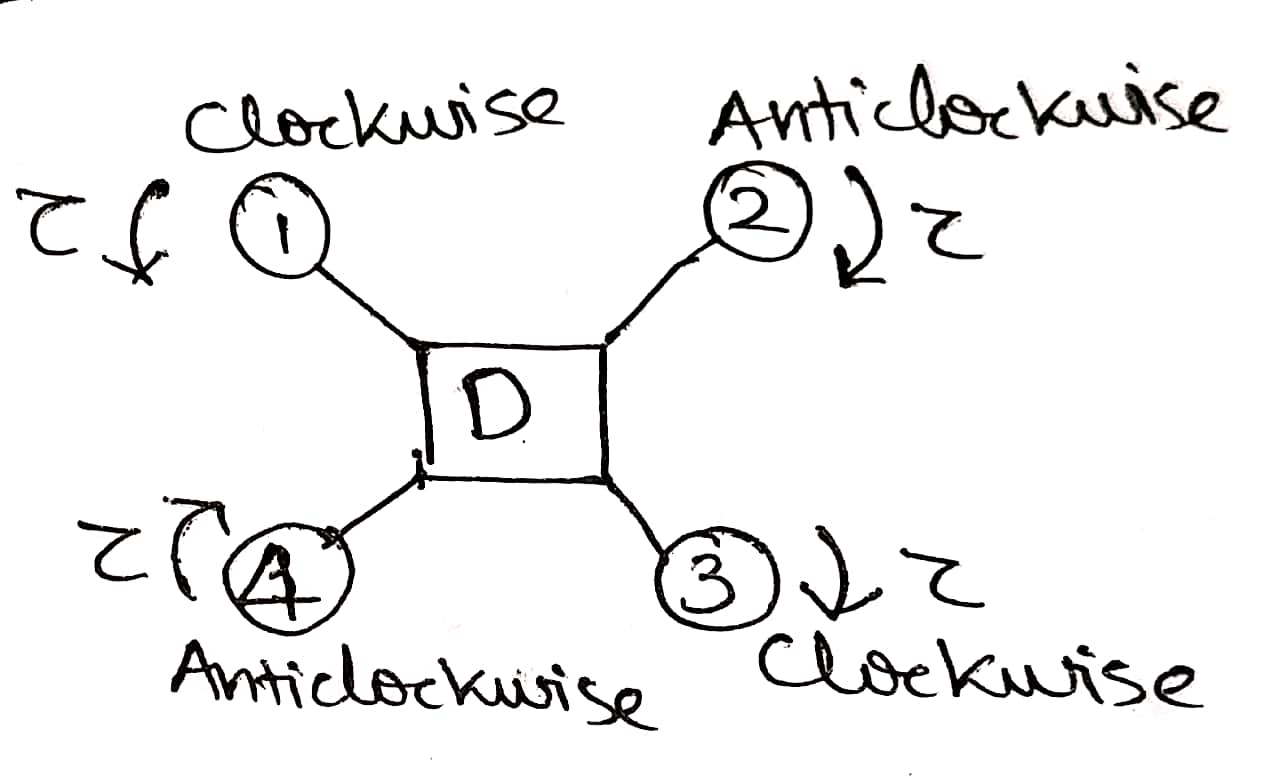 Clockwise Anticlockwise
τ 1 2 τ
D
τ 4 3 τ
Anticlockwise Clockwise